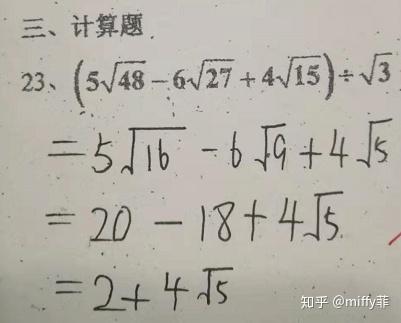 三、计算题
23、(5√48 - 6√27 + 4√15) ÷ √3
= 5√16 - 6√9 + 4√5
= 20 - 18 + 4√5
= 2 + 4√5
知乎 @miffy菲